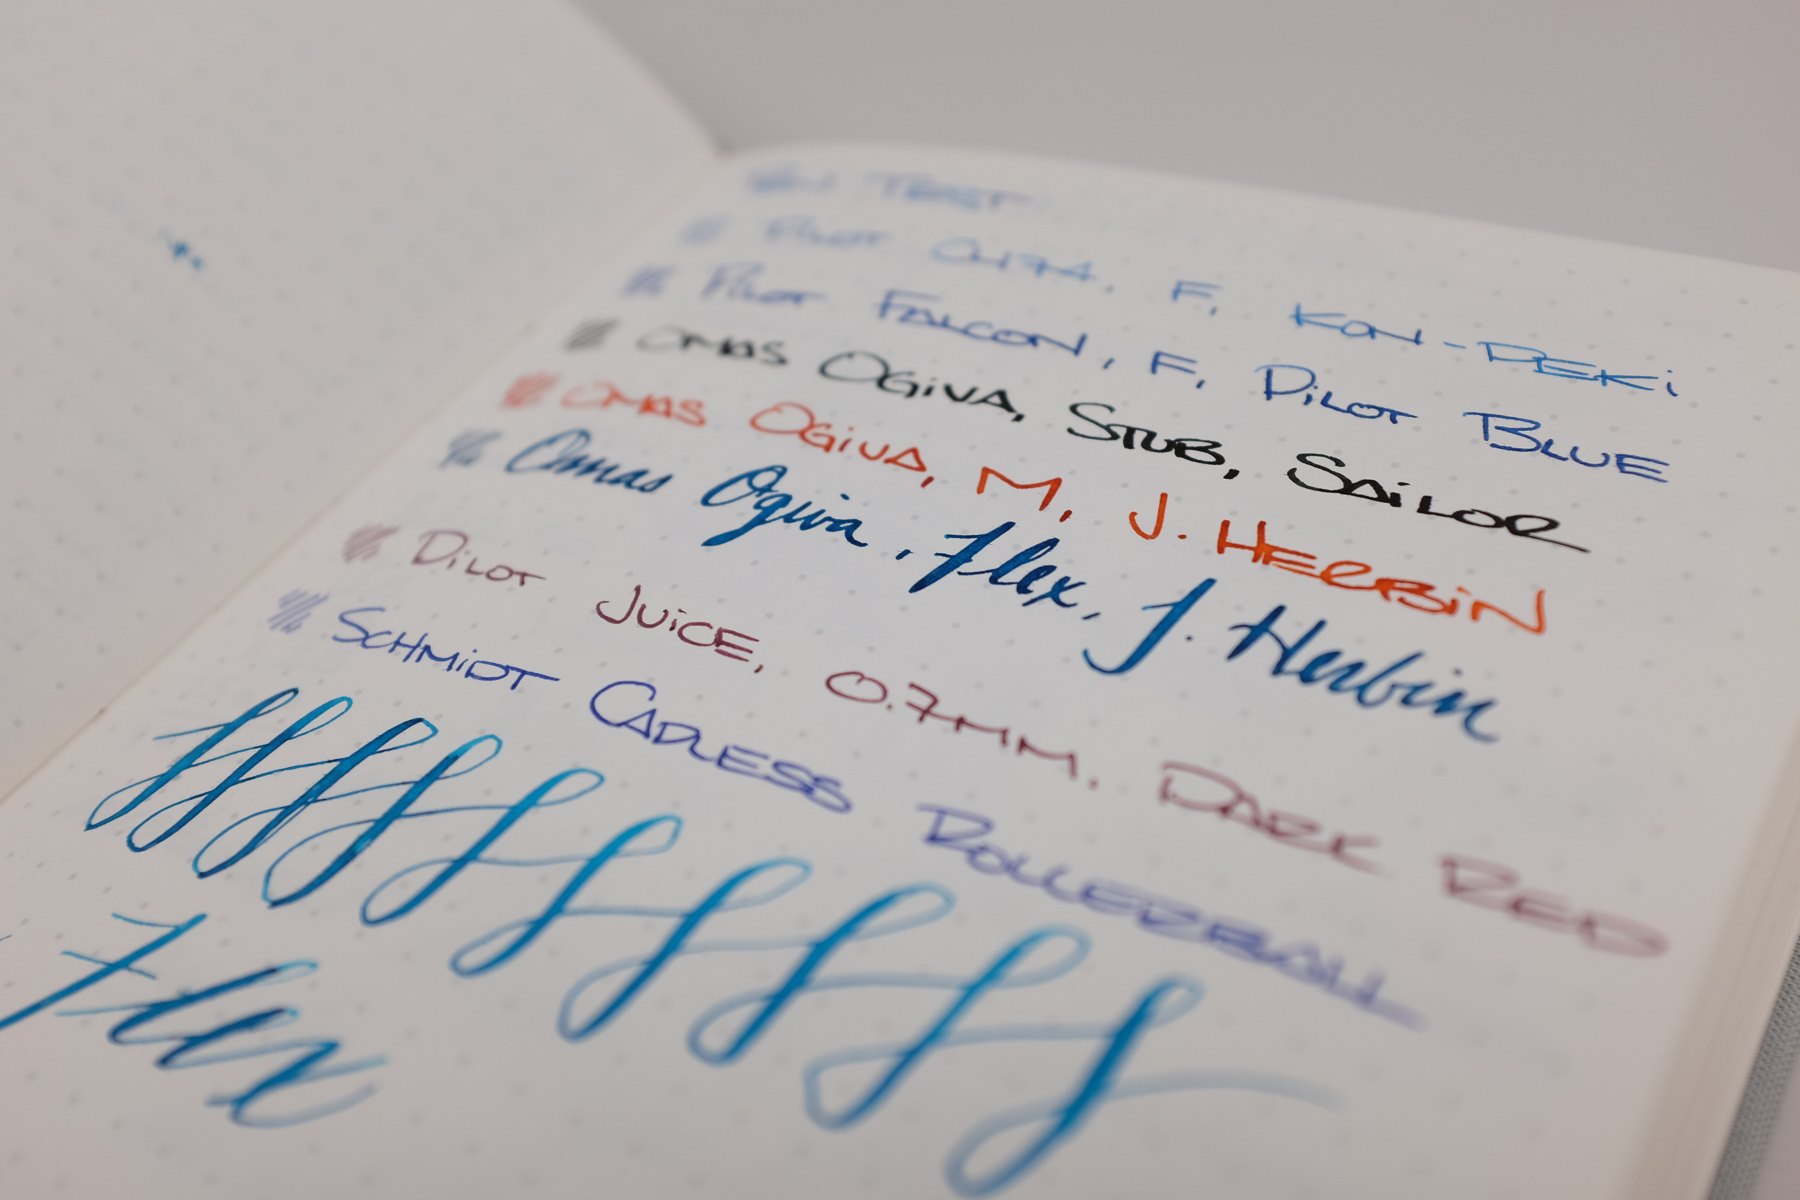 PEN TEST
PILOT CH74, F, KON-PEKI
PILOT FALCON, F, PILOT BLUE
OMAS OGiVA, STUB, SAiLOR
OMAS OGiVA, M, J. HERBiN
Omas Ogiva, Flex, J. Herbin
PiLOT JUiCE, 0.7MM, DARK RED
SCHMiDT CAPLESS ROLLERBALL
Flex